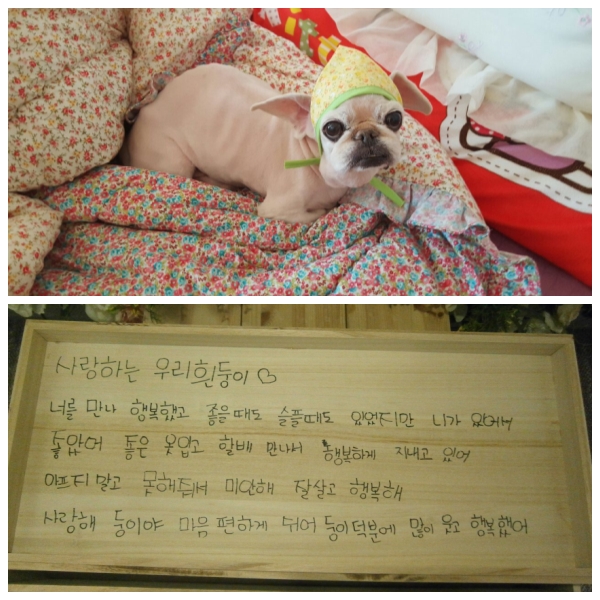 사랑하는 우리 흰둥이 ♡
너를 만나 행복했고 좋을때도 슬플때도 있었지만 니가 있어서
좋았어 좋은 옷입고 할배 만나서 행복하게 지내고 있어
아프지 말고 못해줘서 미안해 잘살고 행복해
사랑해 둥이야 마음 편하게 쉬어 둥이덕분에 많이 웃고 행복했어